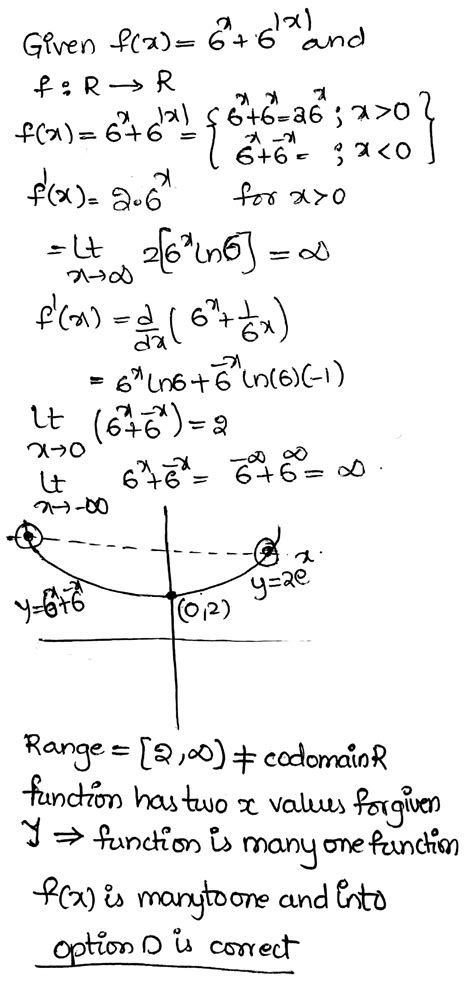 Given f(x) = 6^x + 6^|x| and
f : R → R
f(x) = 6^x + 6^|x| = { 6^x + 6^x = 2 6^x ; x > 0
6^x + 6^-x = ; x < 0 }
f'(x) = 2·6^x for x > 0
= Lt x→∞ 2[6^x ln 6] = ∞
f'(x) = d/dx ( 6^x + 1/6^x )
= 6^x ln 6 + 6^-x ln(6)(-1)
Lt x→0 (6^x + 6^-x) = 2
Lt x→-∞ 6^x + 6^-x = 6^-∞ + 6^∞ = ∞ .
y = 2e^x.
y = 6^x + 6^-x
(0,2)
Range = [2, ∞) ≠ codomain R
function has two x values for given
y ⇒ function is many one function
f(x) is many to one and into
option D is correct